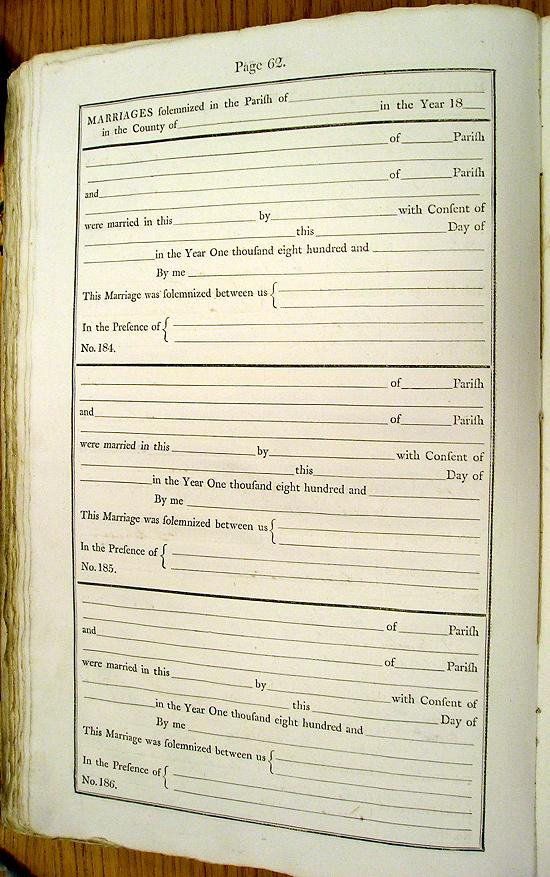 Page 62.
MARRIAGES ſolemnized in the Pariſh of in the Year 18
in the County of
of Pariſh
of Pariſh
and
were married in this by with Conſent of
this Day of
in the Year One thouſand eight hundred and
By me
This Marriage was ſolemnized between us {
In the Preſence of {
No. 184.
of Pariſh
and of Pariſh
were married in this by with Conſent of
this Day of
in the Year One thouſand eight hundred and
By me
This Marriage was ſolemnized between us {
In the Preſence of {
No. 185.
of Pariſh
and
of Pariſh
were married in this by with Conſent of
this Day of
in the Year One thouſand eight hundred and
By me
This Marriage was ſolemnized between us {
In the Preſence of {
No. 186.